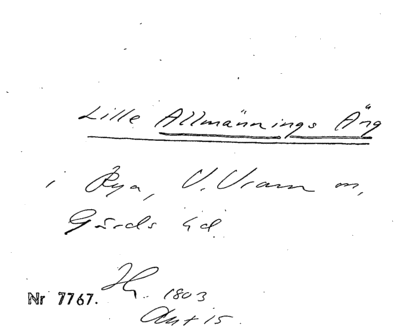 Lille Allmännings Äng
i Rya, V. Vram m,
Gärds hd
Nr 7767. 1803
Akt 15.